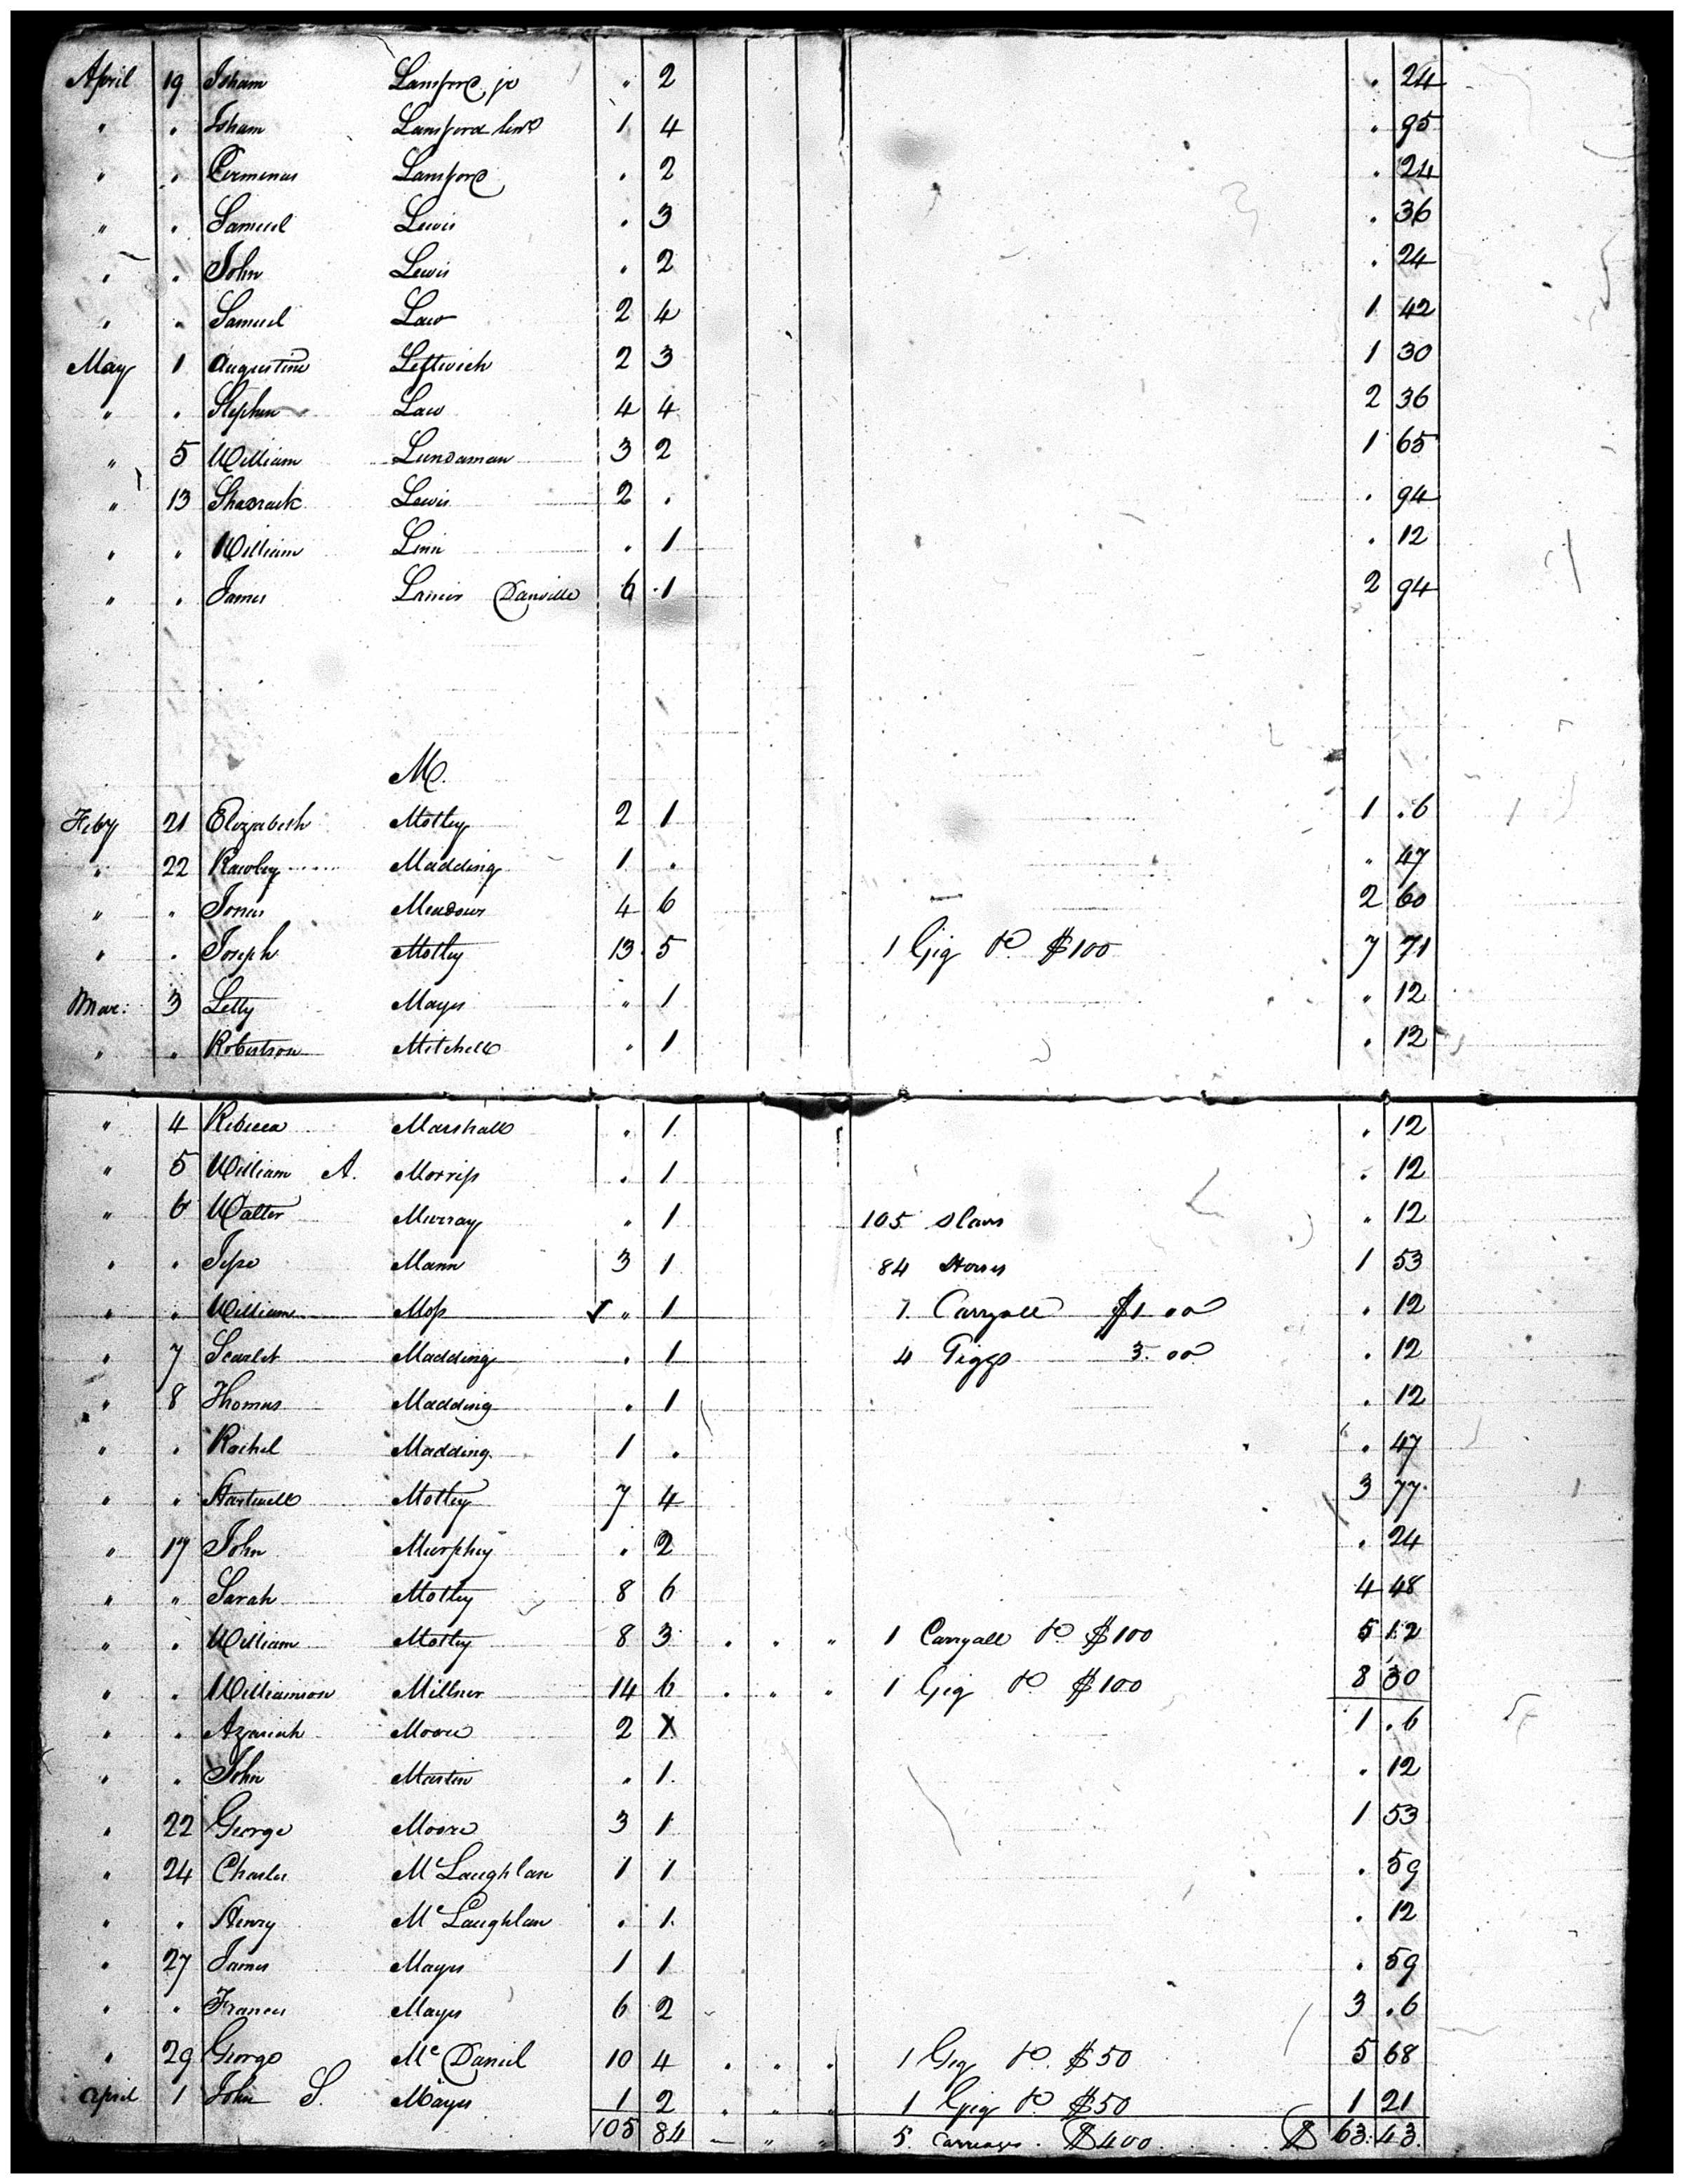 April 19 Isham Lansford jr " 2 " 24
" " Isham Lansford senr 1 4 " 95
" " Lansford " 2 " 24
" " Samuel Lewis " 3 " 36
" " John Lewis " 2 " 24
" " Samuel Law 2 4 1 42
May 1 Augustine Leftwich 2 3 1 30
" " Stephen Law 4 4 2 36
" 5 William Lundaman 3 2 1 65
" 13 Shadrack Lewis 2 " " 94
" " William Linn " 1 " 12
" " James Lanier Danville 6 1 2 94
M.
Feby 21 Elizabeth Motley 2 1 1 .6
" 22 Rawley Madding 1 " " 47
" " Jonas Meadows 4 6 2 60
" " Joseph Motley 13 5 1 Gig do $100 7 71
Mar: 3 Letty Mays " 1 " 12
" " Robertson Mitchell " 1 " 12
" 4 Rebecca Marshall " 1 " 12
" 5 William A. Morriss " 1 " 12
" 6 Walter Murray " 1 105 slaves " 12
" " Jesse Mann 3 1 84 Horses 1 53
" " William Moss " 1 1 Carryall $1 00 " 12
" 7 Scarlet Madding " 1 4 Giggs 3.00 " 12
" 8 Thomas Madding " 1 " 12
" " Rachel Madding 1 " " 47
" " Hartwell Motley 7 4 3 77
" 17 John Murphey " 2 " 24
" " Sarah Motley 8 6 4 48
" " William Motley 8 3 " " " 1 Carryall do $100 5 12
" " Williamson Millner 14 6 " " " 1 Gig do $100 8 30
" " Azariah Moore 2 1 1 .6
" " John Martin " 1 " 12
" 22 George Moore 3 1 1 53
" 24 Charles McLaughlan 1 1 " 59
" " Henry McLaughlan " 1 " 12
" 27 James Mays 1 1 " 59
" " Francis Mays 6 2 3 .6
" 29 George McDaniel 10 4 " " " 1 Gig do $50 5 68
April 1 John S. Mays 1 2 " " " 1 Gig do $50 1 21
105 84 " " " 5 Carriages. $400 $ 63.43.